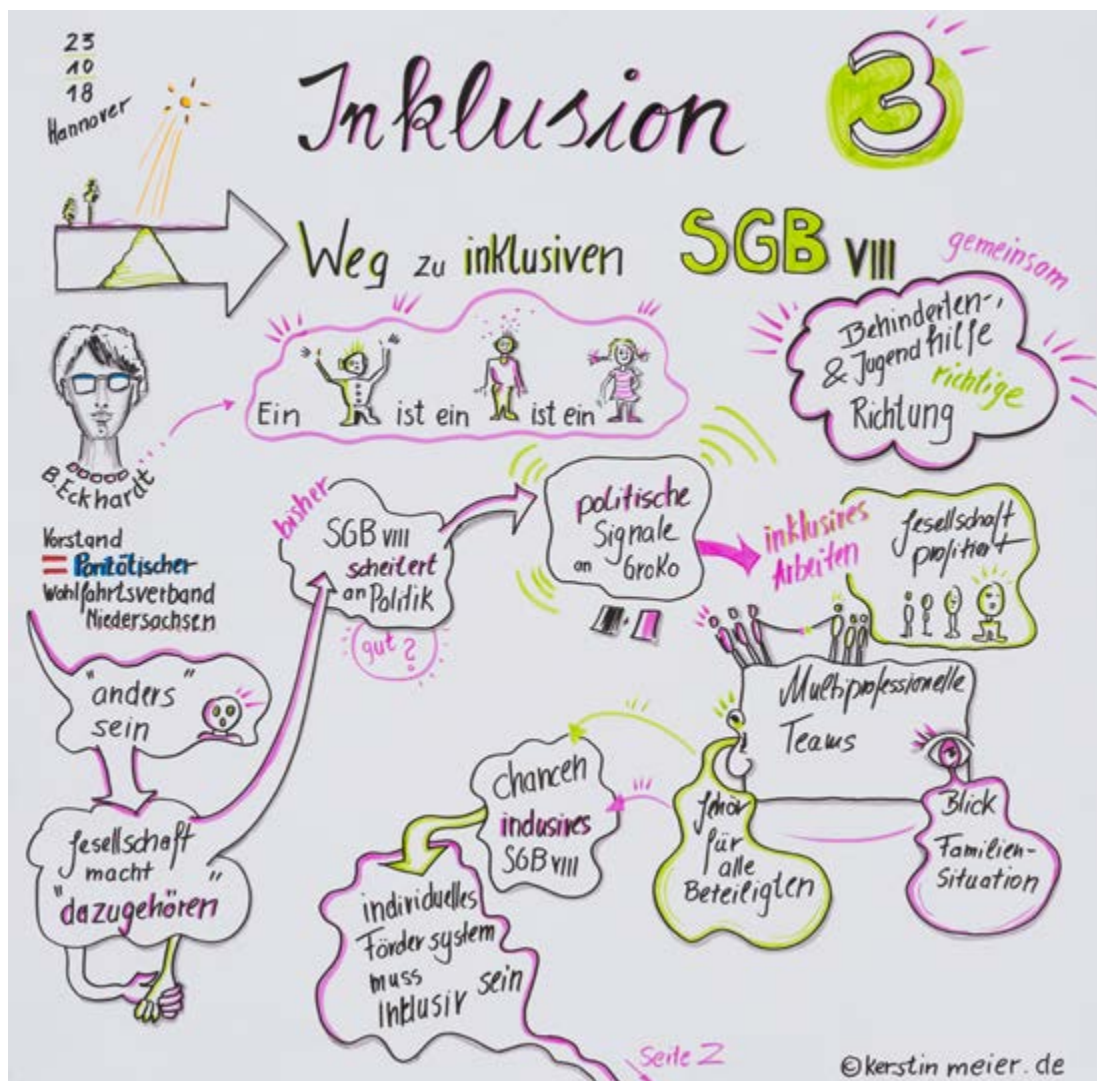 23
10
18
Hannover
Inklusion
3
Weg zu inklusiven SGB VIII
gemeinsam
Behinderten-,
& Jugendhilfe
richtige
Richtung
Ein ist ein ist ein
B. Eckhardt
Vorstand
Paritätischer
Wohlfahrtsverband
Niedersachsen
bisher
SGB VIII
scheitert
an Politik
gut?
politische
Signale
an GroKo
inklusives
Arbeiten
Gesellschaft
profitiert
"anders"
sein
Gesellschaft
macht
"dazugehören"
Multiprofessionelle
Teams
Chancen
inklusives
SGB VIII
Gehör
für
alle
Beteiligten
Blick
Familien-
Situation
individuelles
Fördersystem
muss
Inklusiv sein
Seite 2
©kerstinmeier.de